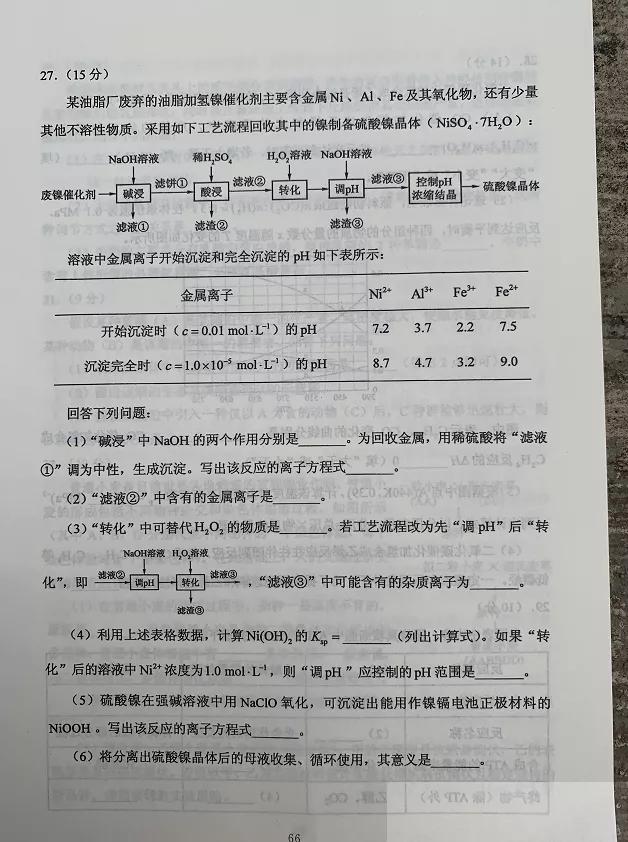 27.（15 分）
某油脂厂废弃的油脂加氢镍催化剂主要含金属 Ni 、Al 、Fe 及其氧化物，还有少量
其他不溶性物质。采用如下工艺流程回收其中的镍制备硫酸镍晶体（NiSO₄·7H₂O）：
NaOH溶液 稀H₂SO₄ H₂O₂溶液 NaOH溶液
废镍催化剂 碱浸 滤饼① 酸浸 滤液② 转化 调pH 滤液③ 控制pH 浓缩结晶 硫酸镍晶体
滤液① 滤渣② 滤渣③
溶液中金属离子开始沉淀和完全沉淀的 pH 如下表所示：
金属离子 Ni²⁺ Al³⁺ Fe³⁺ Fe²⁺
开始沉淀时（c = 0.01 mol·L⁻¹）的 pH 7.2 3.7 2.2 7.5
沉淀完全时（c = 1.0×10⁻⁵ mol·L⁻¹）的 pH 8.7 4.7 3.2 9.0
回答下列问题：
（1）“碱浸”中 NaOH 的两个作用分别是______。为回收金属，用稀硫酸将“滤液
①”调为中性，生成沉淀。写出该反应的离子方程式______。
（2）“滤液②”中含有的金属离子是______。
（3）“转化”中可替代 H₂O₂ 的物质是______。若工艺流程改为先“调 pH”后“转
NaOH溶液 H₂O₂溶液
化”，即 滤液② 调pH 转化 滤液③ ，“滤液③”中可能含有的杂质离子为______。
滤渣③
（4）利用上述表格数据，计算 Ni(OH)₂ 的 Kₛₚ = ______（列出计算式）。如果“转
化”后的溶液中 Ni²⁺ 浓度为 1.0 mol·L⁻¹，则“调 pH ”应控制的 pH 范围是______。
（5）硫酸镍在强碱溶液中用 NaClO 氧化，可沉淀出能用作镍镉电池正极材料的
NiOOH 。写出该反应的离子方程式______。
（6）将分离出硫酸镍晶体后的母液收集、循环使用，其意义是______。
66